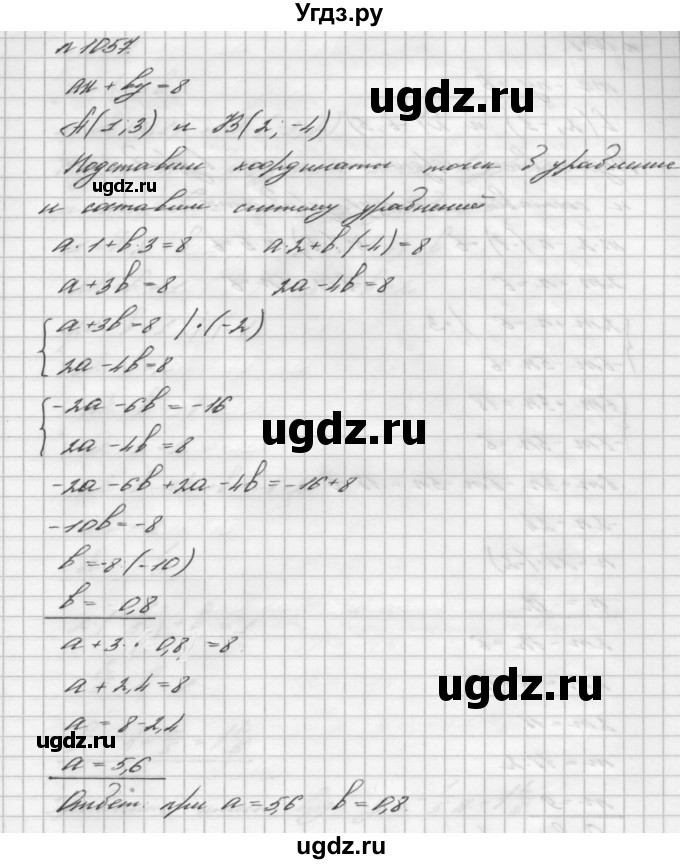 Угдз.ру
n 1057.
ax + by = 8
A(1; 3) и B(2; -4)
Подставим координаты точек в уравнение
и составим систему уравнений
a·1+b·3=8 a·2+b·(-4)=8
a+3b=8 2a-4b=8
a+3b=8 |·(-2)
2a-4b=8
-2a-6b=-16
2a-4b=8
-2a-6b+2a-4b=-16+8
-10b=-8
b=-8:(-10)
b= 0,8
a+3· 0,8 =8
a+2,4=8
a=8-2,4
a=5,6
Ответ: при a=5,6 b=0,8.
ugdz.ru
ugdz.ru
ugdz.ru
ugdz.ru
ugdz.ru
ugdz.ru